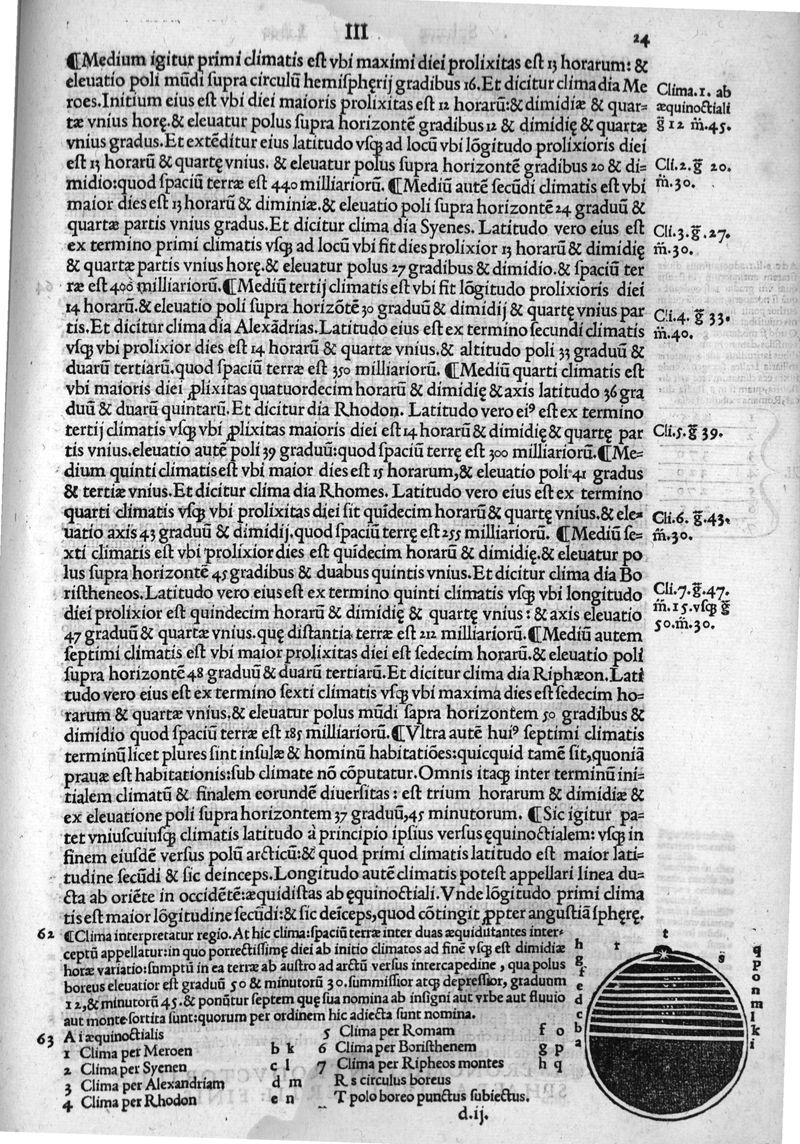 III
24
¶Medium igitur primi climatis est vbi maximi diei prolixitas est 13 horarum: &
eleuatio poli mūdi supra circulū hemisphęrij gradibus 16. Et dicitur clima dia Me
roes. Initium eius est vbi diei maioris prolixitas est 12 horarū: & dimidiæ & quar=
tæ vnius horę. & eleuatur polus supra horizontē gradibus 12 & dimidię & quartæ
vnius gradus. Et extēditur eius latitudo vsq; ad locū vbi lōgitudo prolixioris diei
est 13 horarū & quartę vnius. & eleuatur polus supra horizontē gradibus 20 & di=
midio: quod spaciū terræ est 440 milliariorū. ¶Mediū autē secūdi climatis est vbi
maior dies est 13 horarū & diminiæ. & eleuatio poli supra horizontē 24 graduū &
quartæ partis vnius gradus. Et dicitur clima dia Syenes. Latitudo vero eius est
ex termino primi climatis vsq; ad locū vbi fit dies prolixior 13 horarū & dimidię
& quartæ partis vnius horę. & eleuatur polus 27 gradibus & dimidio. & spaciū ter
ræ est 400 milliariorū. ¶Mediū tertij climatis est vbi fit lōgitudo prolixioris diei
14 horarū. & eleuatio poli supra horizōtē 30 graduū & dimidij & quartę vnius par
tis. Et dicitur clima dia Alexādrias. Latitudo eius est ex termino secundi climatis
vsq; vbi prolixior dies est 14 horarū & quartæ vnius. & altitudo poli 33 graduū &
duarū tertiarū. quod spaciū terræ est 350 milliariorū. ¶Mediū quarti climatis est
vbi maioris diei ꝓlixitas quatuordecim horarū & dimidię & axis latitudo 36 gra
duū & duarū quintarū. Et dicitur dia Rhodon. Latitudo vero eiꝰ est ex termino
tertij climatis vsq; vbi ꝓlixitas maioris diei est 14 horarū & dimidię & quartę par
tis vnius. eleuatio autē poli 39 graduū: quod spaciū terrę est 300 milliariorū. ¶Me=
dium quinti climatis est vbi maior dies est 15 horarum, & eleuatio poli 41 gradus
& tertiæ vnius. Et dicitur clima dia Rhomes. Latitudo vero eius est ex termino
quarti climatis vsq; vbi prolixitas diei sit quīdecim horarū & quartę vnius. & ele=
uatio axis 43 graduū & dimidij. quod spaciū terrę est 255 milliariorū. ¶Mediū se=
xti climatis est vbi prolixior dies est quīdecim horarū & dimidię. & eleuatur po
lus supra horizontē 45 gradibus & duabus quintis vnius. Et dicitur clima dia Bo
ristheneos. Latitudo vero eius est ex termino quinti climatis vsq; vbi longitudo
diei prolixior est quindecim horarū & dimidię & quartę vnius: & axis eleuatio
47 graduū & quartæ vnius. quę distantia terræ est 212 milliariorū. ¶Mediū autem
septimi climatis est vbi maior prolixitas diei est sedecim horarū. & eleuatio poli
supra horizontē 48 graduū & duarū tertiarū. Et dicitur clima dia Riphæon. Lati
tudo vero eius est ex termino sexti climatis vsq; vbi maxima dies est sedecim ho=
rarum & quartæ vnius. & eleuatur polus mūdi sapra horizontem 50 gradibus &
dimidio quod spaciū terræ est 185 milliariorū. ¶Vltra autē huiꝰ septimi climatis
terminū licet plures sint insulæ & hominū habitatiōes: quicquid tamē sit, quoniā
prauæ est habitationis: sub climate nō cōputatur. Omnis itaq; inter terminū ini=
tialem climatū & finalem eorundē diuersitas: est trium horarum & dimidiæ &
ex eleuatione poli supra horizontem 37 graduū, 45 minutorum. ¶Sic igitur pa=
tet vniuscuiusq; climatis latitudo à principio ipsius versus ęquinoctialem: vsq; in
finem eiusdē versus polū arcticū: & quod primi climatis latitudo est maior lati=
tudine secūdi & sic deinceps. Longitudo autē climatis potest appellari linea du=
cta ab oriēte in occidētē: æquidistās ab ęquinoctiali. Vnde lōgitudo primi clima
tis est maior lōgitudine secūdi: & sic deīceps, quod cōtingit ꝓpter angustiā sphęrę.
Clima. 1. ab
æquinoctiali
g̅ 12 m̅. 45.
Cli. 2. g̅ 20.
m̅. 30.
Cli. 3. g̅. 27.
m̅. 30.
Cli. 4. g̅ 33.
m̅. 40.
Cli. 5. g̅ 39.
Cli. 6. g̅. 43.
m̅. 30.
Cli. 7. g̅. 47.
m̅. 15. vsq; g̅
50. m̅. 30.
62 ¶Clima interpretatur regio. At hic clima: spaciū terræ inter duas æquidistantes inter=
ceptū appellatur: in quo porrectissimę diei ab initio climatos ad finē vsq; est dimidiæ
horæ variatio: sumptū in ea terræ ab austro ad arctū versus intercapedine, qua polus
boreus eleuatior est graduū 50 & minutorū 30. summissior atq; depressior, graduum
12, & minutorū 45. & ponūtur septem quę sua nomina ab insigni aut vrbe aut fluuio
aut monte sortita sunt: quorum per ordinem hic adiecta sunt nomina.
63 A i æquinoctialis
1 Clima per Meroen b k
2 Clima per Syenen c l
3 Clima per Alexandriam d m
4 Clima per Rhodon e n
5 Clima per Romam f o
6 Clima per Boristhenem g p
7 Clima per Ripheos montes h q
R s circulus boreus
T polo boreo punctus subiectus.
d.ij.
t
r
s
h
g
f
e
d
c
b
a
q
p
o
n
m
l
k
i